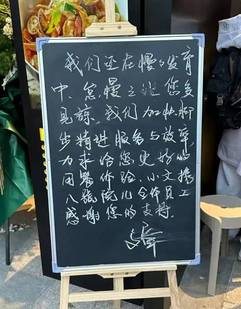 我们还在慢慢发育
中,怠慢之处您多
见谅。我们加快脚
步精进服务与效率,
力求给您更好的
用餐体验,小文携
八号院儿全体员工
感谢您的支持。